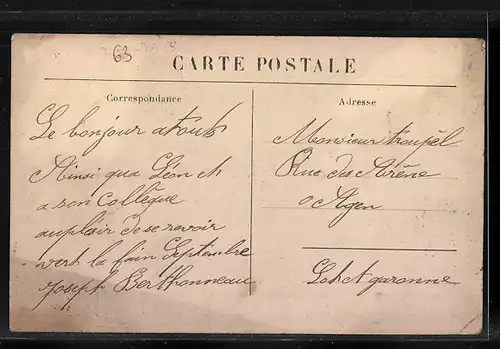 63
CARTE POSTALE
Correspondance
Le bonjour atouts
Ainsi qua Léon et
a son Collêque
auplair de se revoir
vert la fain Septembre
Joseph Berthonneau
Adresse
Monsieur troupel
Rue des Arêne
Agen
Lot et garonne